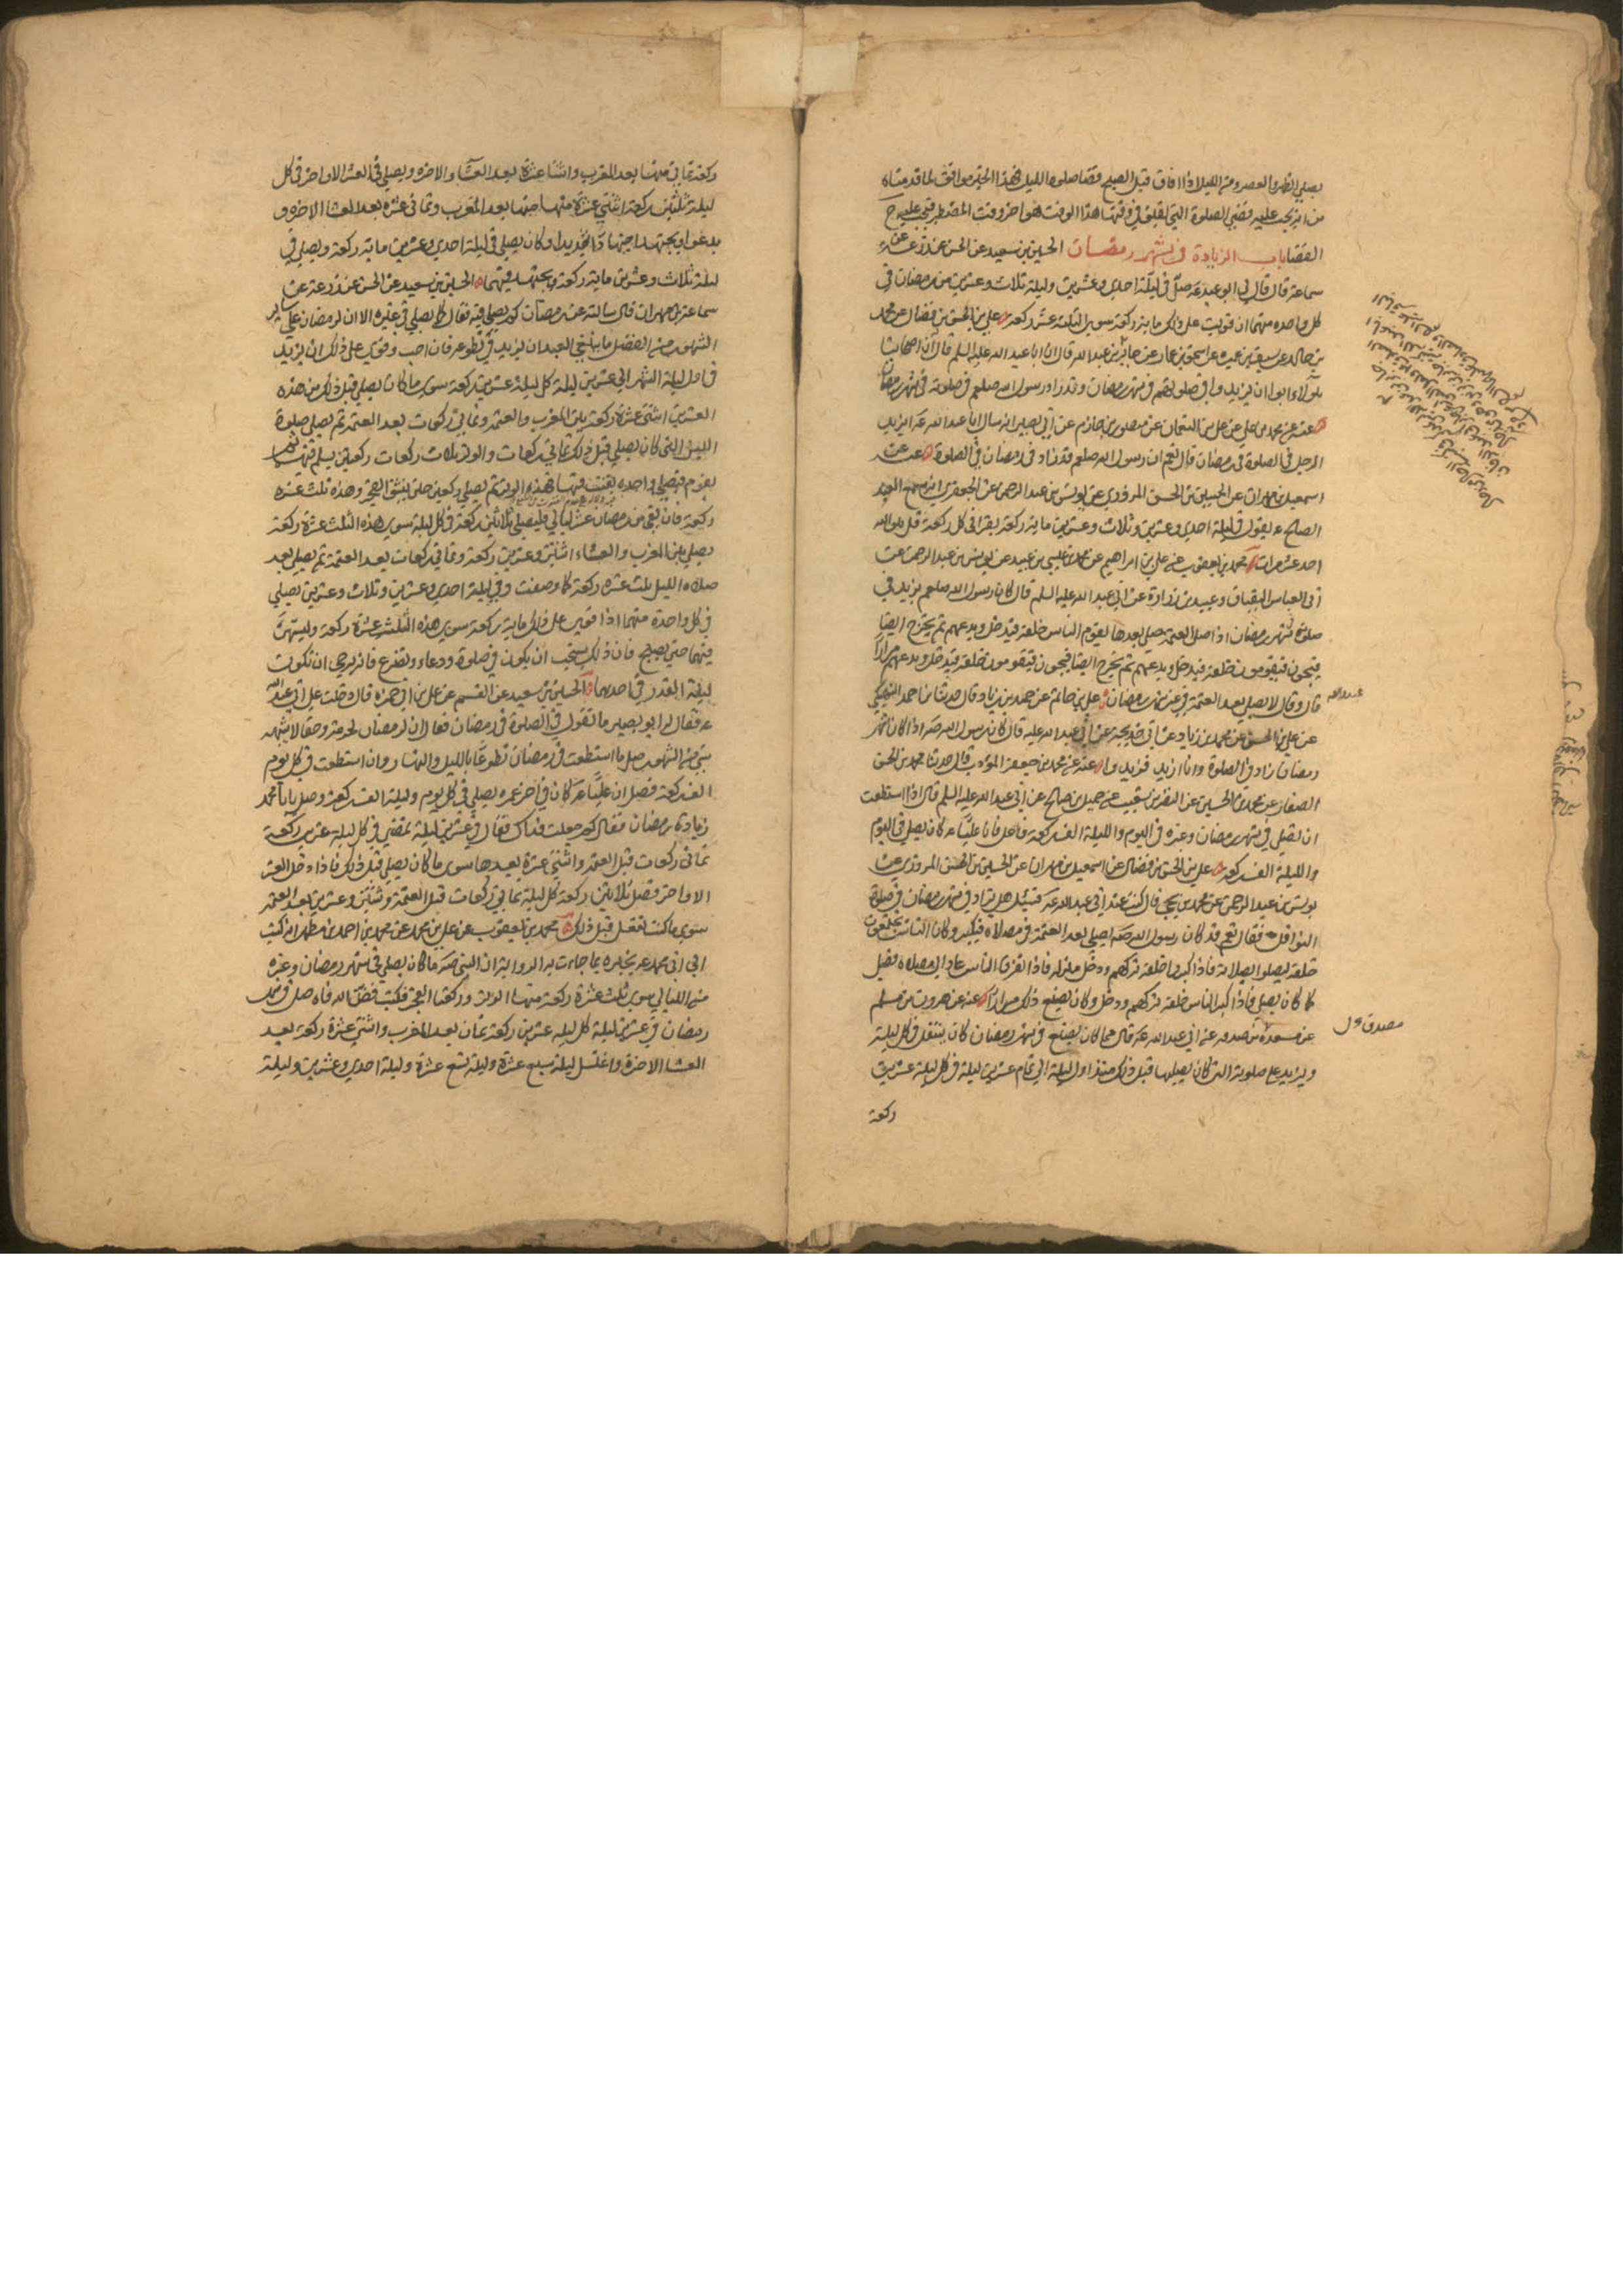 يصلي الظهر والعصر ومن الليل اذا افاق قبل الصبح قضا صلوة الليل فهذا الخبر موافق لما قدمناه
من انه يجب عليه قضى الصلوة التي يفيق في وقتها هذا الوقت هو اخر وقت المضطر فيجب عليه ح
القضا باب الزيادة في شهر رمضان الحسين بن سعيد عن الحسن عن زرعة عن
سماعة قال قال لي ابو عبد الله عه صل في ليلة احدي وعشرين وليلة ثلاث وعشرين من رمضان في
كل واحده منهما ان قويت علي ذلك مايه ركعة سوي الثلثة عشر ركعة علي بن الحسن بن فضال عن محمد
بن خالد عن سيف بن عميره عن اسحق بن عمار عن جابر بن عبد الله قال ان ابا عبد الله عليه السلم قال ان اصحابنا
هولاء ابوا ان يزيدوا في صلوتهم في شهر رمضان وقد زاد رسول الله صلعم في صلوته في شهر رمضان
عنه عن محمد بن علي عن علي بن النعمان عن منصور بن حازم عن ابي بصير انه سال ابا عبد الله عه ايزيد
الرجل في الصلوة في رمضان قال نعم ان رسول الله صلعم قد زاد في رمضان في الصلوة عنه عن
اسمعيل بن مهران عن الحسين بن الحسن المروزي عن يونس بن عبد الرحمن عن الجعفري انه سمع العبد
الصالح عه يقول في ليلة احدي وعشرين وثلاث وعشرين مايه ركعة يقرا في كل ركعة قل هو الله
احد عشر مرات محمد بن يعقوب عن علي بن ابراهيم عن محمد بن عيسي بن عبيد عن يونس بن عبد الرحمن عن
ابي العباس البقباق وعبيد بن زرارة عن ابي عبد الله عليه السلم قال كان رسول الله صلعم يزيد في
صلوة شهر رمضان اذا صلى العتمة صلي بعدها يقوم الناس خلفه فيدخل ويدعهم ثم يخرج ايضا
فيجون فيقومون خلفه فيدخل ويدعهم ثم يخرج ايضا فيجون فيقومون خلفه فيدخل ويدعهم مرارا
قال وقال لا تصل بعد العتمة في غير شهر رمضان علي بن حاتم عن حميد بن زياد قال حدثنا عبيد الله بن احمد النهيكي
عن علي بن الحسن عن محمد بن زياد عن ابي خديجه عن ابي عبد الله عليه قال كان رسول الله صه اذا كان شهر
رمضان زاد في الصلوة وانا ازيد فزيدوا عنه عن محمد بن جعفر المؤدب قال حدثنا محمد بن الحسن
الصفار عن محمد بن الحسين عن النضر بن شعيب عن جميل بن صالح عن ابي عبد الله عليه السلم قال اذا استطعت
ان تصلي في شهر رمضان وغيره في اليوم والليلة الف ركعة فافعل فان عليا عه كان يصلي في اليوم
والليلة الف ركعة علي بن الحسن بن فضال عن اسمعيل بن مهران عن الحسين بن الحسن المروزي عن
يونس بن عبد الرحمن عن محمد بن يحيى قال كنت عند ابي عبد الله عه فسئل هل يزاد في شهر رمضان في صلوة
النوافل فقال نعم قد كان رسول الله صه يصلي بعد العتمة في مصلاه فيكثر وكان الناس يجتمعون
خلفه ليصلوا بصلاته فاذا كثروا خلفه تركهم ودخل منزله فاذا تفرق الناس عاد الي مصلاه فصلي
كما كان يصلي فاذا كثر الناس خلفه تركهم ودخل وكان يصنع ذلك مرارا عنه عن هرون بن مسلم
عن مسعدة بن صدقه عن ابي عبد الله عه قال مما كان يصنع في شهر رمضان كان يتنفل في كل ليلة
ويزيد علي صلوته التي كان يصليها قبل ذلك منذ اول ليلة الي تمام عشرين ليلة في كل ليلة عشرين
ركعة
ركعة ثماني منها بعد المغرب واثنتا عشرة بعد العشاء الاخره ويصلي في العشر الاواخر في كل
ليلة ثلثين ركعة اثنتي عشرة منها بعد المغرب وثماني عشره بعد العشا الاخره و
يدعوا ويجتهد اجتهادا شديدا وكان يصلي في ليلة احدي وعشرين مايه ركعة ويصلي في
ليلة ثلاث وعشرين مايه ركعة ويجتهد فيهما الحسين بن سعيد عن الحسن عن زرعة عن
سماعة بن مهران قال سالته عن رمضان كم يصلي فيه فقال كما يصلي في غيره الا ان لرمضان علي ساير
الشهور من الفضل ما ينبغي للعبد ان يزيد في تطوعه فان احب وقوي علي ذلك ان يزيد
في اول ليلة الشهر الي عشرين ليلة كل ليلة عشرين ركعة سوي ما كان يصلي قبل ذلك من هذه
العشرين اثنتي عشرة ركعة بين المغرب والعتمه وثماني ركعات بعد العتمة ثم يصلي صلوة
الليل التي كان يصلي قبل ذلك ثماني ركعات والوتر ثلاث ركعات ركعتين يسلم فيهما ثم
يقوم فيصلي واحده يقنت فيها فهذه الوتر ثم يصلي ركعتين حتي ينشق الفجر وهذه ثلث عشره
ركعة فان بقي من رمضان عشر ليالي فليصلي ثلاثين ركعة في كل ليلة سوي هذه الثلث عشرة ركعة
يصلي بين المغرب والعشاء اثنتين وعشرين ركعة وثماني ركعات بعد العتمة ثم يصلي بعد
صلاه الليل ثلث عشره ركعة كما وصفت وفي ليلة احدي وعشرين وثلاث وعشرين يصلي
في كل واحدة منهما اذا قوي علي ذلك مايه ركعة سوي هذه الثلث عشرة ركعة وليسهر
فيهما حتي يصبح فان ذلك يستحب ان يكون في صلوة ودعاء وتضرع فانه يرجي ان تكون
ليلة القدر في احديهما الحسين بن سعيد عن القسم عن علي بن ابي حمزه قال دخلت علي ابي عبد الله
عه فقال له ابو بصير ما تقول في الصلوة في رمضان فقال ان لرمضان لحرمة وحقا لا يشبهه
شي من الشهور صل ما استطعت في رمضان تطوعا بالليل والنهار وان استطعت في كل يوم
الف ركعة فصل ان عليا عه كان في اخر عمره يصلي في كل يوم وليلة الف ركعة وصل يا ابا محمد
زيادة رمضان فقال كم جعلت فداك فقال في عشرين ليلة تمضي في كل ليلة عشرين ركعة
ثماني ركعات قبل العتمه واثنتي عشرة بعدها سوي ما كان يصلي قبل ذلك فاذا دخل العشر
الاواخر فصل ثلاثين ركعة كل ليلة ثماني ركعات قبل العتمة وثنتين وعشرين بعد العتمه
سوي ما كنت تفعل قبل ذلك محمد بن يعقوب عن علي بن محمد عن محمد بن احمد بن مطهر انه كتب
الي ابي محمد عه يخبره بما جاءت به الرواية ان النبي صه ما كان يصلي في شهر رمضان وغيره
من الليالي سوي ثلث عشرة ركعة منها الوتر وركعتا الفجر فكتب فض الله فاه صلى في شهر
رمضان في عشرين ليلة كل ليله عشرين ركعة ثمان بعد المغرب واثنتي عشرة ركعة بعد
العشا الاخرة واغتسل ليلة سبع عشرة وليلة تسع عشرة وليلة احدي وعشرين وليلة